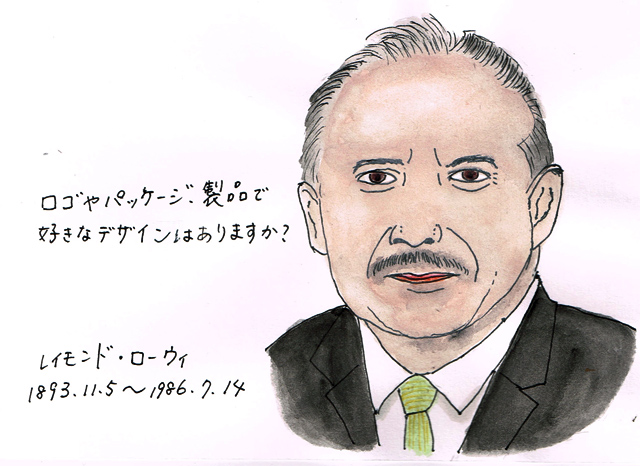 ロゴやパッケージ、製品で
好きなデザインはありますか?
レイモンド・ローウィ
1893.11.5～1986.7.14